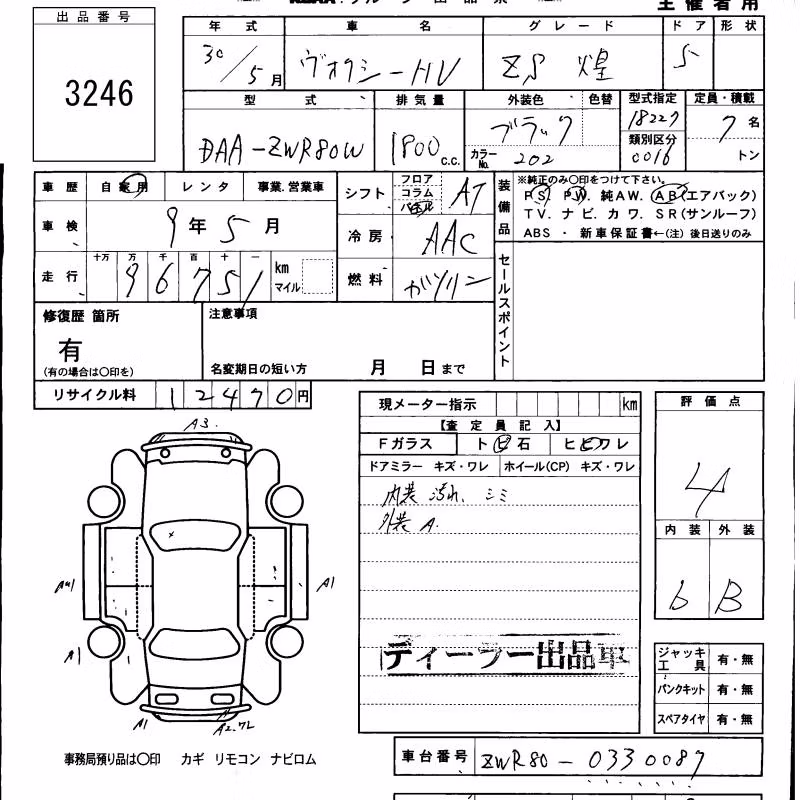 主催者用
出品番号
3246
年式 車名 グレード ドア 形状
30/5月 ヴォクシーHV ZS 煌 5
型式 排気量 外装色 色替 型式指定 定員・積載
DAA-ZWR80W 1800 c.c. ブラック カラーNo. 202 18227 類別区分 0016 7名 トン
車歴 自家用 レンタ 事業.営業車
車検 9年5月
走行 十万 万 千 百 十 一
96751 km マイル
シフト フロア コラム パネル AT
冷房 AAC
燃料 ガソリン
装備品
※純正のみ〇印をつけて下さい。
PS. PW. 純AW. AB(エアバック)
TV. ナビ. カワ. SR(サンルーフ)
ABS ・ 新車保証書←(注) 後日送りのみ
セールスポイント
修復歴 箇所
有
(有の場合は〇印を)
注意事項
名変期日の短い方 月 日まで
リサイクル料 12470円
現メーター指示 km
【査定員記入】
Fガラス トビ石 ヒビワレ
ドアミラー キズ・ワレ ホイール(CP) キズ・ワレ
内装 汚れ、シミ
外装 A.
ディーラー出品車
評価点
4
内装 外装
b B
ジャッキ工具 有・無
パンクキット 有・無
スペアタイヤ 有・無
A3.
A1
A1
A1
事務局預り品は〇印 カギ リモコン ナビロム
車台番号 ZWR80-0330087